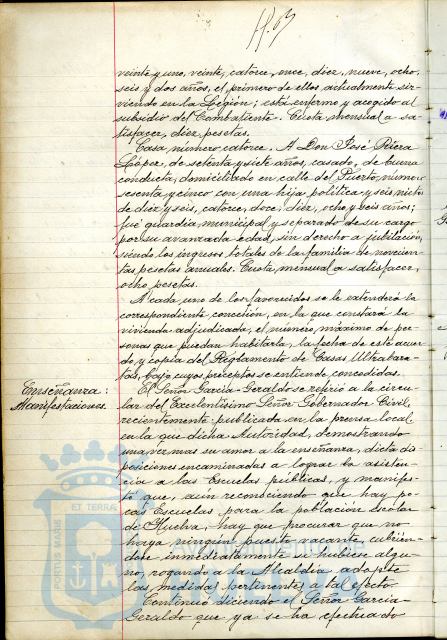 veinte y uno, veinte, catorce, once, diez, nueve, ocho,
seis y dos años, el primero de ellos actualmente sir-
viendo en la Legión; está enfermo y acogido al
subsidio del Combatiente. Cuota mensual a sa-
tisfacer, diez pesetas.
Casa número catorce. A Don José Riera
López, de setenta y siete años, casado, de buena
conducta, domiciliado en calle del Puerto, número
sesenta y cinco con una hija política y seis nietos
de diez y seis, catorce, doce, diez, ocho y seis años;
fué guardia municipal y separado de su cargo
por su avanzada edad, sin derecho a jubilación,
siendo los ingresos totales de la familia de novecien-
tas pesetas anuales. Cuota mensual a satisfacer,
ocho pesetas.
A cada uno de los favorecidos se le extenderá la
correspondiente concesión, en la que constará la
vivienda adjudicada, el número máximo de per-
sonas que puedan habitarla, la fecha de este acuer-
do, y copia del Reglamento de Casas Ultrabara-
tas, bajo cuyos preceptos se entiende concedidas.
Enseñanza:
Manifestaciones.
El Señor García-Geraldo se refirió a la circu-
lar del Excelentísimo Señor Gobernador Civil,
recientemente publicada en la prensa local
en la que dicha Autoridad, demostrando
una vez mas su amor a la enseñanza, dicta dis-
posiciones encaminadas a lograr la asisten-
cia a las Escuelas públicas, y manifes-
tó que, aún reconociendo que hay po-
cas Escuelas para la población Escolar
de Huelva, hay que procurar que no
haya ningún puesto vacante, cubrién-
dose inmediatamente si hubiese algu-
no, rogando a la Alcaldía adopte
las medidas pertinentes a tal efecto.
Continuó diciendo el Señor García-
Geraldo que ya se ha efectuado
PORTUS MARIS
ET TERRÆ